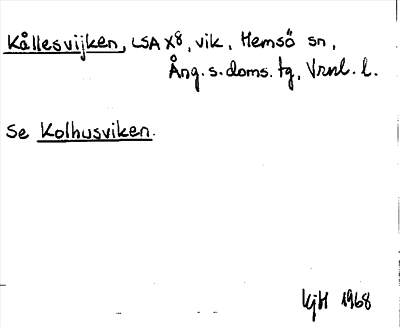 Kållesvijken, LSA X8, vik, Hemsö sn,
Ång. s. doms. tg, Vrnl. l.
Se Kolhusviken.
KjH 1968